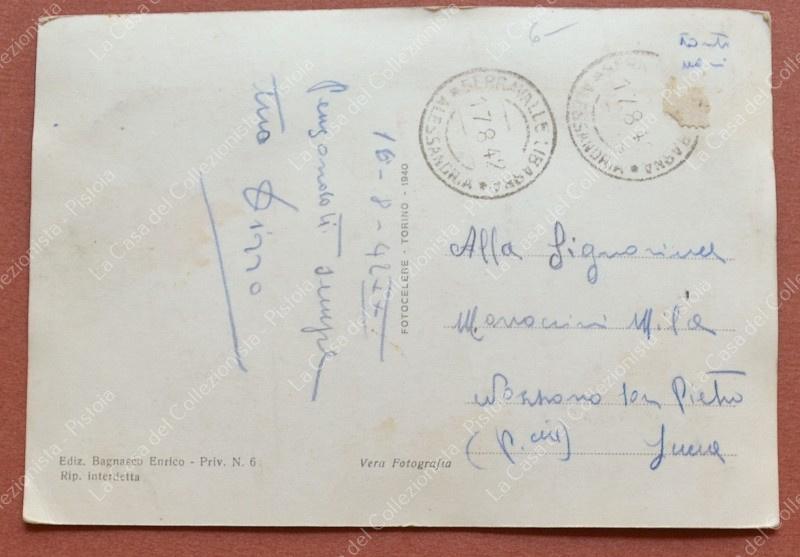 6-
SERRAVALLE LIBARNA * ALESSANDRIA *
17.8.42
17.8
ALESSANDRIA *
16-8-42 XX
Pensandoti sempre
tuo
Alla Signorina
M.
Nozzano San Pietro
(P. cia) Lucca
FOTOCELERE - TORINO - 1940
Ediz. Bagnasco Enrico - Priv. N. 6
Rip. interdetta
Vera Fotografia
La Casa del Collezionista - Pistoia